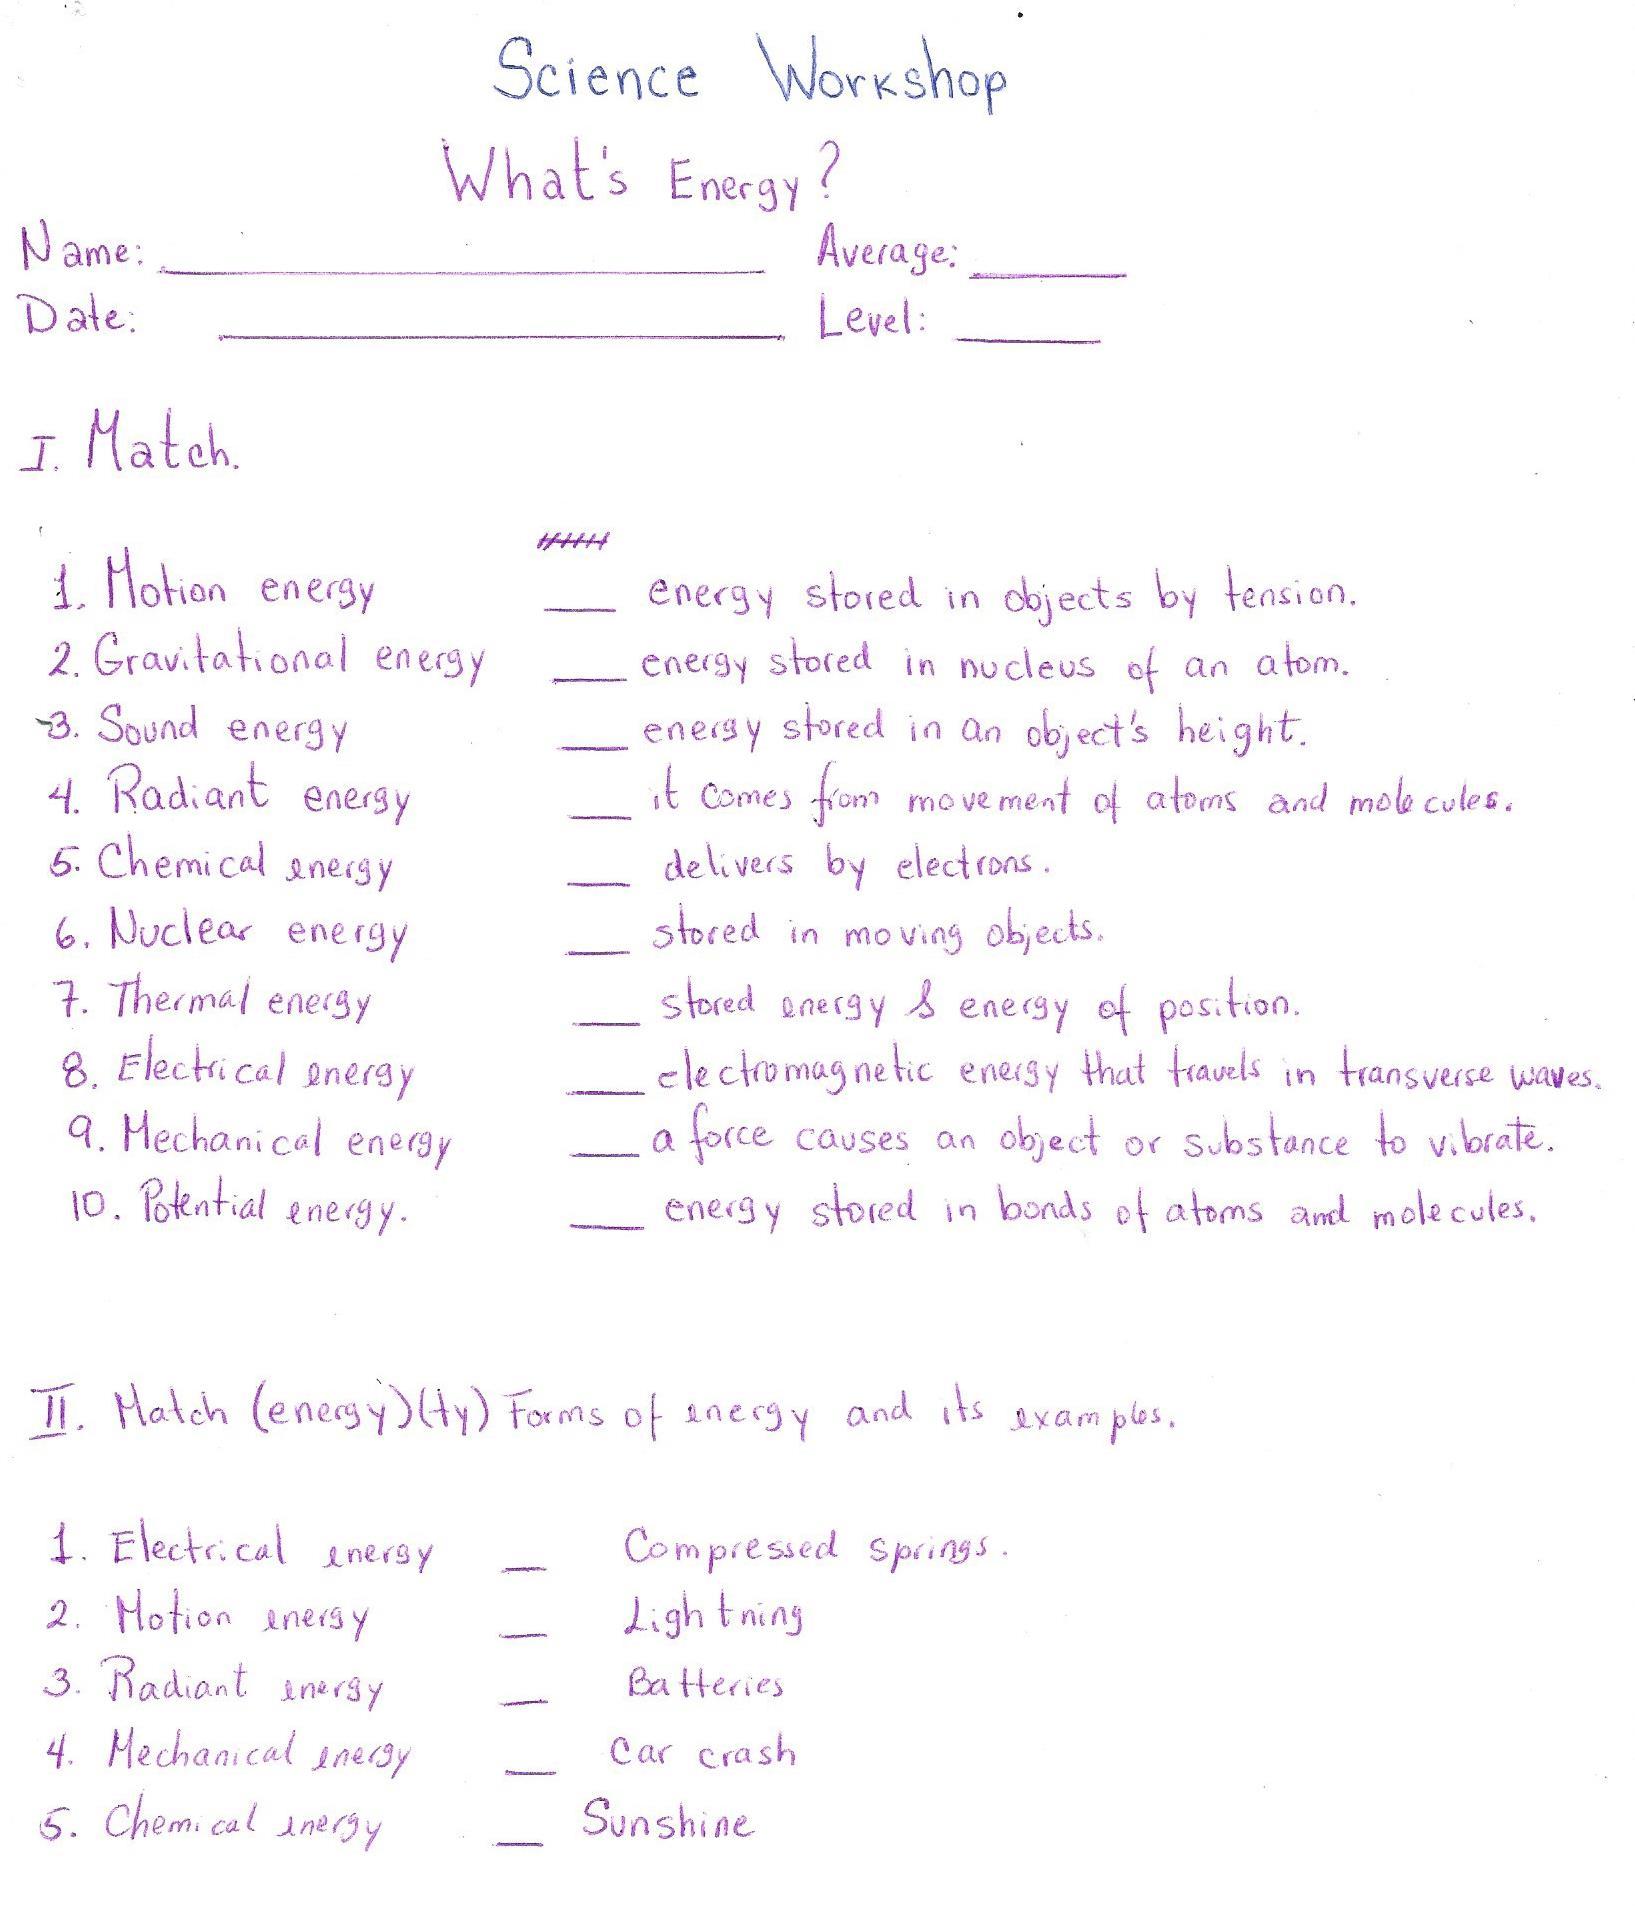 Science Workshop
What's Energy?
Name: ____________ Average: ____
Date: ____________ Level: ____
I. Match.
1. Motion energy ___ energy stored in objects by tension.
2. Gravitational energy ___ energy stored in nucleus of an atom.
3. Sound energy ___ energy stored in an object's height.
4. Radiant energy ___ it comes from movement of atoms and molecules.
5. Chemical energy ___ delivers by electrons.
6. Nuclear energy ___ stored in moving objects.
7. Thermal energy ___ stored energy & energy of position.
8. Electrical energy ___ electromagnetic energy that travels in transverse waves.
9. Mechanical energy ___ a force causes an object or substance to vibrate.
10. Potential energy. ___ energy stored in bonds of atoms and molecules.
II. Match (energy)(ty) Forms of energy and its examples.
1. Electrical energy __ Compressed springs.
2. Motion energy __ Lightning
3. Radiant energy __ Batteries
4. Mechanical energy __ Car crash
5. Chemical energy __ Sunshine